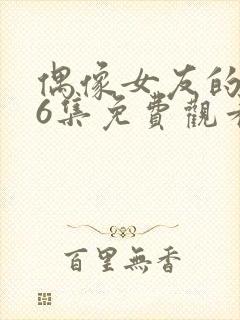 偶像女友的
6集免費觀看
百里無香